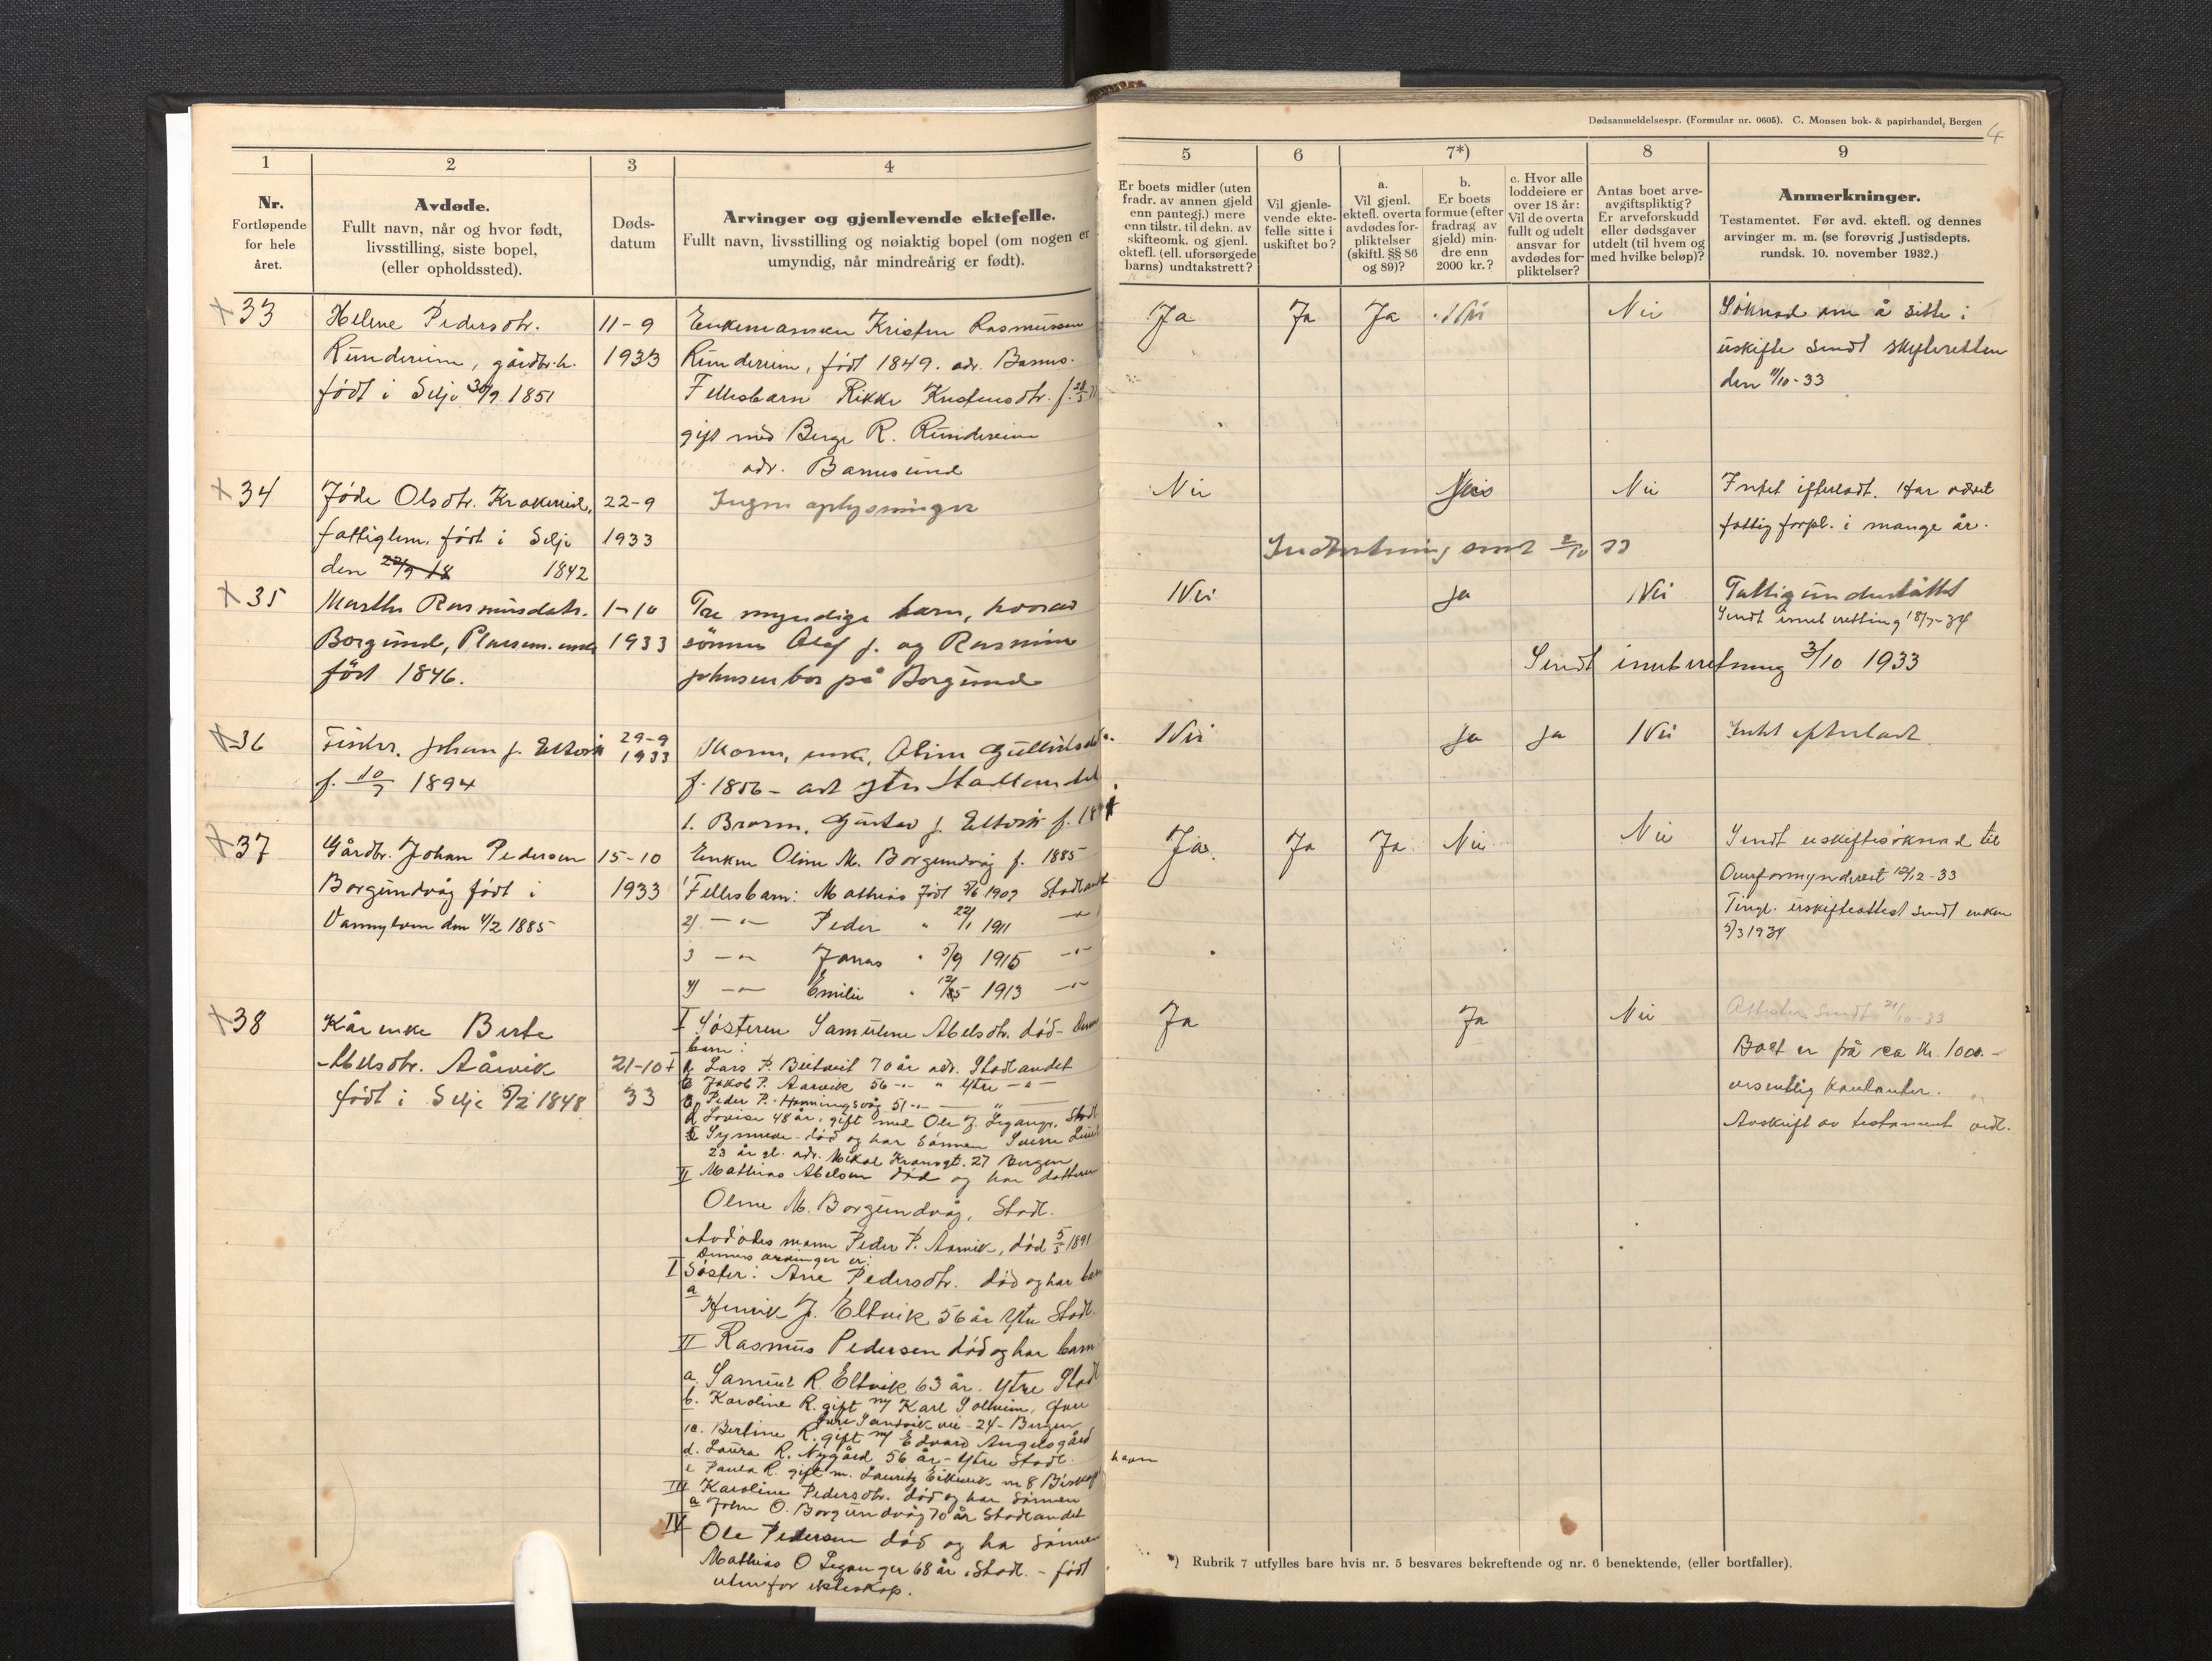 Dødsanmeldelsespr. (Formular nr. 0605). C. Monsen bok- & papirhandel, Bergen
4
1 2 3 4 5 6 7*) 8 9
Nr.
Fortløpende
for hele
året.
Avdøde.
Fullt navn, når og hvor født,
livsstilling, siste bopel,
(eller opholdssted).
Døds-
datum
Arvinger og gjenlevende ektefelle.
Fullt navn, livsstilling og nøiaktig bopel (om nogen er
umyndig, når mindreårig er født).
Er boets midler (uten
fradr. av annen gjeld
enn pantegj.) mere
enn tilstr. til dekn. av
skifteomk. og gjenl.
ektefl. (ell. uforsørgede
barns) undtakstrett?
Vil gjenle-
vende ekte-
felle sitte i
uskiftet bo?
a.
Vil gjenl.
ektefl. overta
avdødes for-
pliktelser
(skiftl. §§ 86
og 89)?
b.
Er boets
formue (efter
fradrag av
gjeld) min-
dre enn
2000 kr.?
c. Hvor alle
loddeiere er
over 18 år:
Vil de overta
fullt og udelt
ansvar for
avdødes for-
pliktelser?
Antas boet arve-
avgiftspliktig?
Er arveforskudd
eller dødsgaver
utdelt (til hvem og
med hvilke beløp)?
Anmerkninger.
Testamentet. Før avd. ektefl. og dennes
arvinger m. m. (se forøvrig Justisdepts.
rundsk. 10. november 1932.)
33
Helene Pedersdtr.
Rundereim, gårdbr.h.
født i Selje 30/9 1851
11-9
1933
Enkemannen Kristen Rasmussen
Rundereim, født 1849. adr. Barms.
Fellesbarn Rikke Kristensdtr.
gift med Berge R. Rundereim
adr. Barmsund
Ja Ja Ja Nei Nei
Søknad om å sitte i
uskifte sendt skifteretten
den 11/10-33
34
Jøde Olsdtr. Krakereid,
fattiglem. født i Selje
den 22/9 18 1842
22-9
1933
Ingen oplysninger
Nei Nei
Intet efterladt. Har været
fattigforpl. i mange år.
Indberetning sent 2/10 33
35
Marthe Rasmusdatr.
Borgund, Plassm. enke
født 1846.
1-10
1933
Tre myndige barn, hvorav
sønnen Olaf J. og Rasmine
Johnsen bor på Borgund
Nei Ja Nei
Fattigunderstøttet
Sendt innberetting 18/7-34
Sendt innberetning 3/10 1933
36
Fisker. Johan J. Eltvik
f. 10/7 1894
29-9
1933
Moren, enke, Oline Gulliksdtr.
f. 1856 - adr Ytre Stadlandet
1. Broren, Gustav J. Eltvik f.
Nei Ja Ja Nei
Intet efterladt
37
Gårdbr. Johan Pedersen
Borgundvåg født i
Vannylven den 4/2 1885
15-10
1933
Enken Oline M. Borgundvåg f. 1885
1 Fellesbarn: Mathias født 3/6 1909 Stadlandet
2) -"- Peder " 22/1 1911 -"-
3 -"- Jonas " 5/9 1915 -"-
4) -"- Emilie " 1913 -"-
Ja. Ja Ja Nei Nei
Sendt uskiftesøknad til
Overformynderiet 12/12-33
Tingl. uskifteattest sendt enken
5/3 1934
38
Kårenke Berte
Abelsdtr. Aarvik
født i Selje 5/2 1848
21-10
33
I Søsteren Samuline Abelsdtr. død - Dennes
barn:
a Lars P. Berstveit 70 år adr. Stadlandet
b Jakob P. Aarvik 56 -"- " Ytre -"-
c Peder P. Honningsvåg 51 -"- "
d Lovise 48 år, gift med Ole J. Leganger, Stadl
e Synneve - død og har sønnen Sverre
23 år gl. adr. Mikal Kronsgt. 27 Bergen
II Mathias Abelsen død og har datteren
Oline M. Borgundvåg, Stadl.
Avdødes mann Peder P. Aarvik, død 5/5 1891
Dennes arvinger er:
I Søster: Ane Pedersdtr. død og har barn
a
Henrik J. Eltvik 56 år Ytre Stadl.
II Rasmus Pedersen død og har barn
a. Samuel R. Eltvik 63 år. Ytre Stadl
b. Karoline R. gift m/ Karl Solheim,
Sandvik vei - 24 - Bergen
c. Bertine R. gift m/ Edvard Angelsgård
d. Laura R. Nygård 56 år - Ytre Stadl.
e Paula R. gift m. Lauritz Eikevik m 8 Biskopshavn
III Karoline Pedersdtr. død og har sønnen
a John O. Borgundvåg 70 år Stadlandet
IV
Ole Pedersen død og ha sønnen
Mathias O Leganger 68 år, Stadl. - født
utenfor ekteskap.
Ja Ja Nei
Attester sendt 21/10-33
Boet er på ca kr. 1000.-
vesentlig kontanter.
Avskrift av testament vedl.
*) Rubrik 7 utfylles bare hvis nr. 5 besvares bekreftende og nr. 6 benektende, (eller bortfaller).